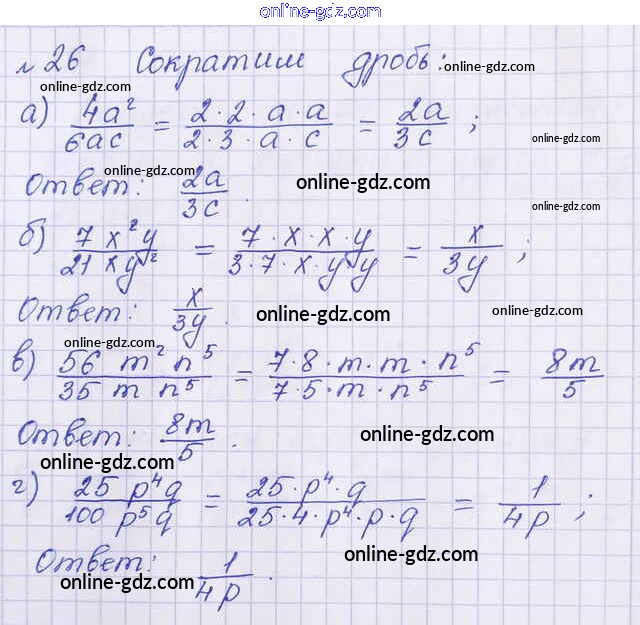 online-gdz.com
№ 26 Сократим дробь:
online-gdz.com
а) 4a²/6ac = 2·2·a·a/2·3·a·c = 2a/3c ;
online-gdz.com
online-gdz.com
Ответ: 2a/3c .
online-gdz.com
online-gdz.com
б) 7x²y/21xy² = 7·x·x·y/3·7·x·y·y = x/3y ;
Ответ: x/3y .
online-gdz.com
online-gdz.com
online-gdz.com
в) 56 m² n⁵/35 m n⁵ = 7·8·m·m·n⁵/7·5·m·n⁵ = 8m/5
Ответ: 8m/5 .
online-gdz.com
online-gdz.com
г) 25 p⁴q/100 p⁵q = 25·p⁴·q/25·4·p⁴·p·q = 1/4p ;
Ответ: 1/4p .
online-gdz.com
online-gdz.com